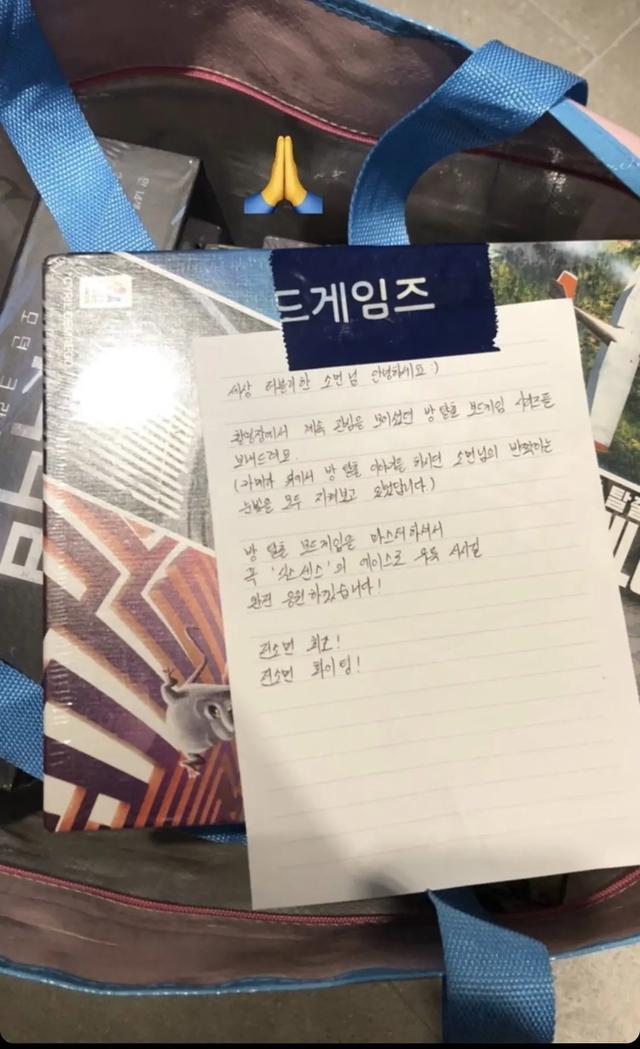 드게임즈
세상 러블리한 소민님 안녕하세요 :)
촬영장에서 계속 관심을 보이셨던 방 탈출 보드게임 시리즈를
보내드려요.
(카메라 뒤에서 방 탈출 이야기를 하시던 소민님의 반짝이는
눈빛을 모두 지켜보고 있었답니다.)
방 탈출 보드게임을 마스터하셔서
꼭 '식스센스'의 에이스로 우뚝 서시길
완전 응원하겠습니다!
전소민 최고!
전소민 화이팅!